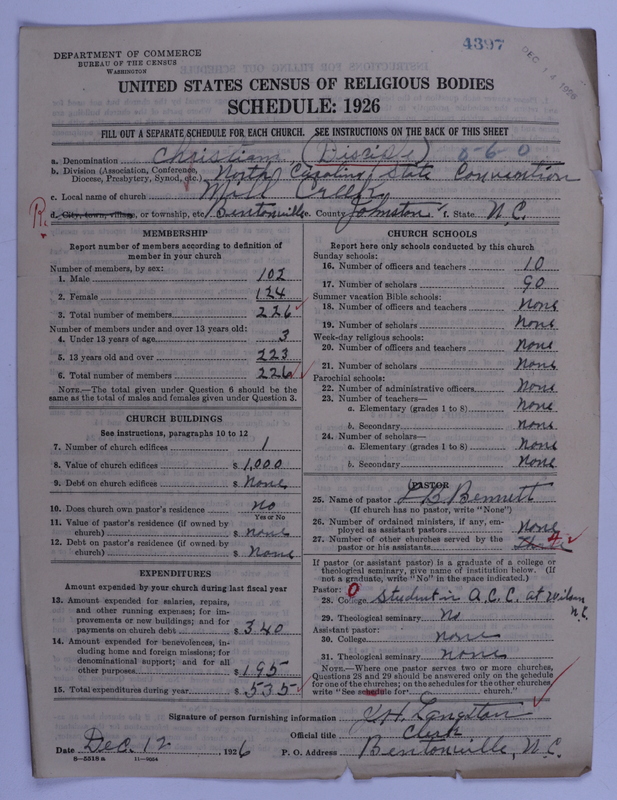 DEPARTMENT OF COMMERCE
BUREAU OF THE CENSUS
WASHINGTON
4397
DEC 14 1926
UNITED STATES CENSUS OF RELIGIOUS BODIES
SCHEDULE: 1926
FILL OUT A SEPARATE SCHEDULE FOR EACH CHURCH. SEE INSTRUCTIONS ON THE BACK OF THIS SHEET
a. Denomination Christian (Disciple) 0-60
b. Division (Association, Conference, Diocese, Presbytery, Synod, etc.) North Carolina State Convention
c. Local name of church Mill Creek
R. d. City, town, village, or township, etc. Bentonville e. County Johnston f. State N.C.
MEMBERSHIP
Report number of members according to definition of
member in your church
Number of members, by sex:
1. Male 102
2. Female 124
3. Total number of members 226
Number of members under and over 13 years old:
4. Under 13 years of age 3
5. 13 years old and over 223
6. Total number of members 226
NOTE.—The total given under Question 6 should be
the same as the total of males and females given under Question 3.
CHURCH BUILDINGS
See instructions, paragraphs 10 to 12
7. Number of church edifices 1
8. Value of church edifices $ 1,000
9. Debt on church edifices $ None
10. Does church own pastor's residence No
Yes or No
11. Value of pastor's residence (if owned by
church) $ None
12. Debt on pastor's residence (if owned by
church) $ None
EXPENDITURES
Amount expended by your church during last fiscal year
13. Amount expended for salaries, repairs,
and other running expenses; for im-
provements or new buildings; and for
payments on church debt $ 340
14. Amount expended for benevolences, in-
cluding home and foreign missions; for
denominational support; and for all
other purposes $ 195
15. Total expenditures during year $ 535
CHURCH SCHOOLS
Report here only schools conducted by this church
Sunday schools:
16. Number of officers and teachers 10
17. Number of scholars 90
Summer vacation Bible schools:
18. Number of officers and teachers None
19. Number of scholars None
Week-day religious schools:
20. Number of officers and teachers None
21. Number of scholars None
Parochial schools:
22. Number of administrative officers None
23. Number of teachers—
a. Elementary (grades 1 to 8) None
b. Secondary None
24. Number of scholars—
a. Elementary (grades 1 to 8) None
b. Secondary None
PASTOR
25. Name of pastor Bennett
(If church has no pastor, write "None")
26. Number of ordained ministers, if any, em-
ployed as assistant pastors None
27. Number of other churches served by the
pastor or his assistants Three
If pastor (or assistant pastor) is a graduate of a college or
theological seminary, give name of institution below. (If
not a graduate, write "No" in the space indicated.)
Pastor: 0
28. College Student in A.C.C. at Wilson N.C.
29. Theological seminary No
Assistant pastor:
30. College none
31. Theological seminary none
NOTE.—Where one pastor serves two or more churches,
Questions 28 and 29 should be answered only on the schedule
for one of the churches; on the schedules for the other churches,
write "See schedule for church."
Signature of person furnishing information J.H. Langston
Official title Clerk
Date Dec. 12 1926 P. O. Address Bentonville, N.C.
8—5318 a 11—9034